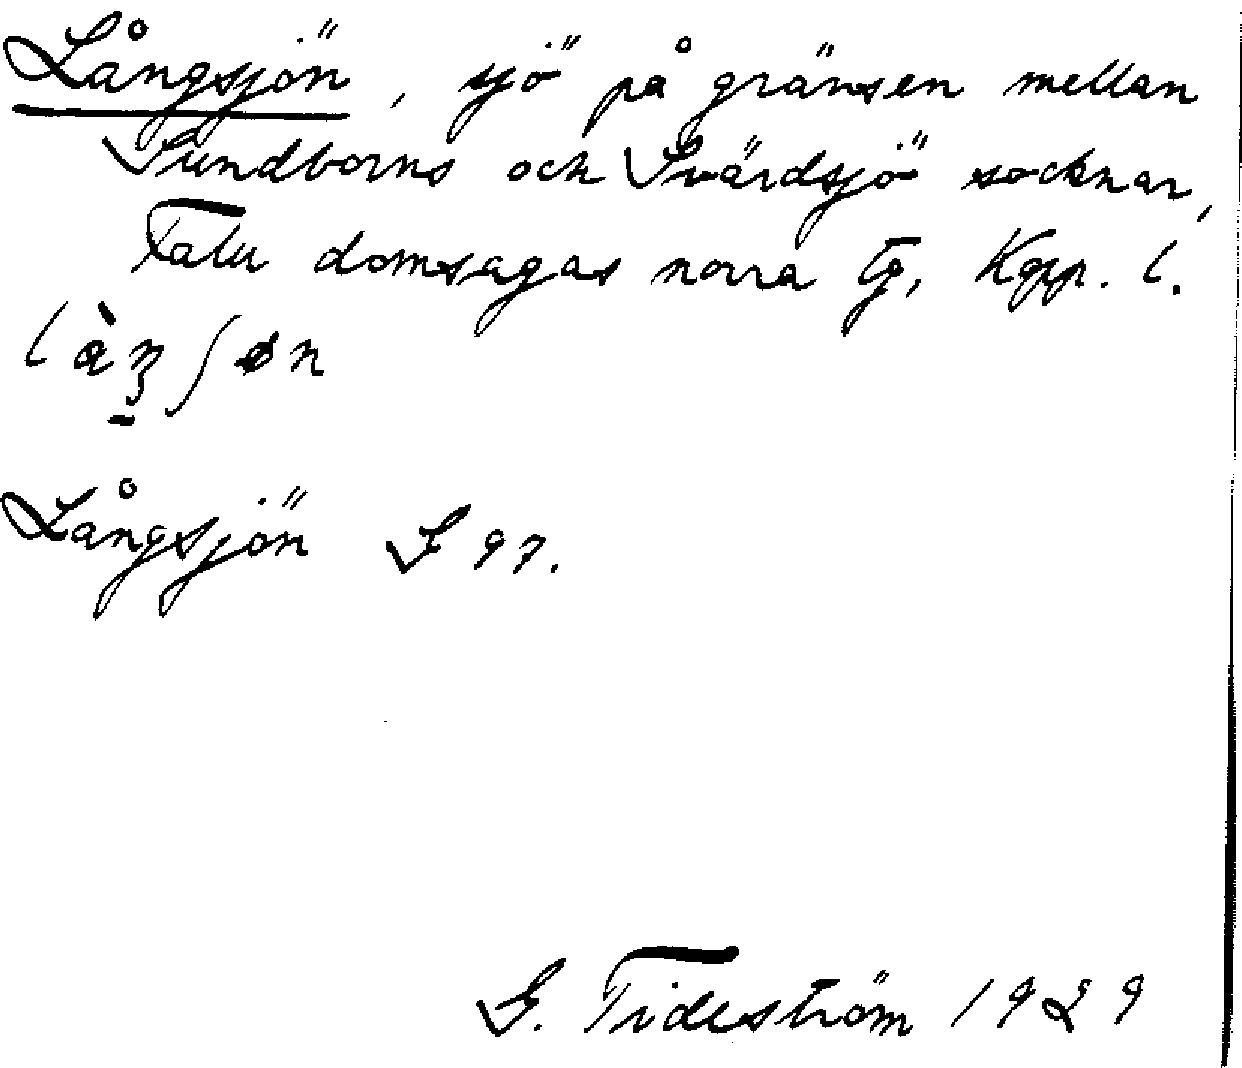 Långsjön, sjö på gränsen mellan
Sundborns och Svärdsjö socknar,
Falu domsagas norra tg, Kopp. l.
Långsjön S 97.
G. Tideström 1929